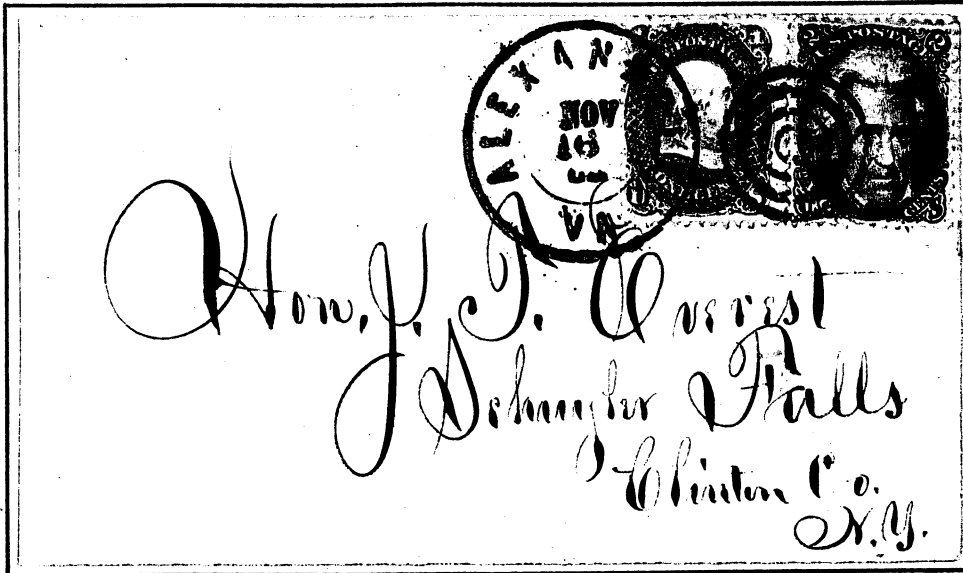 ALEXAN
NOV
16
VA
U.S. POSTAGE
Hon. J. T. Everest
Schuyler Falls
Clinton Co.
N.Y.